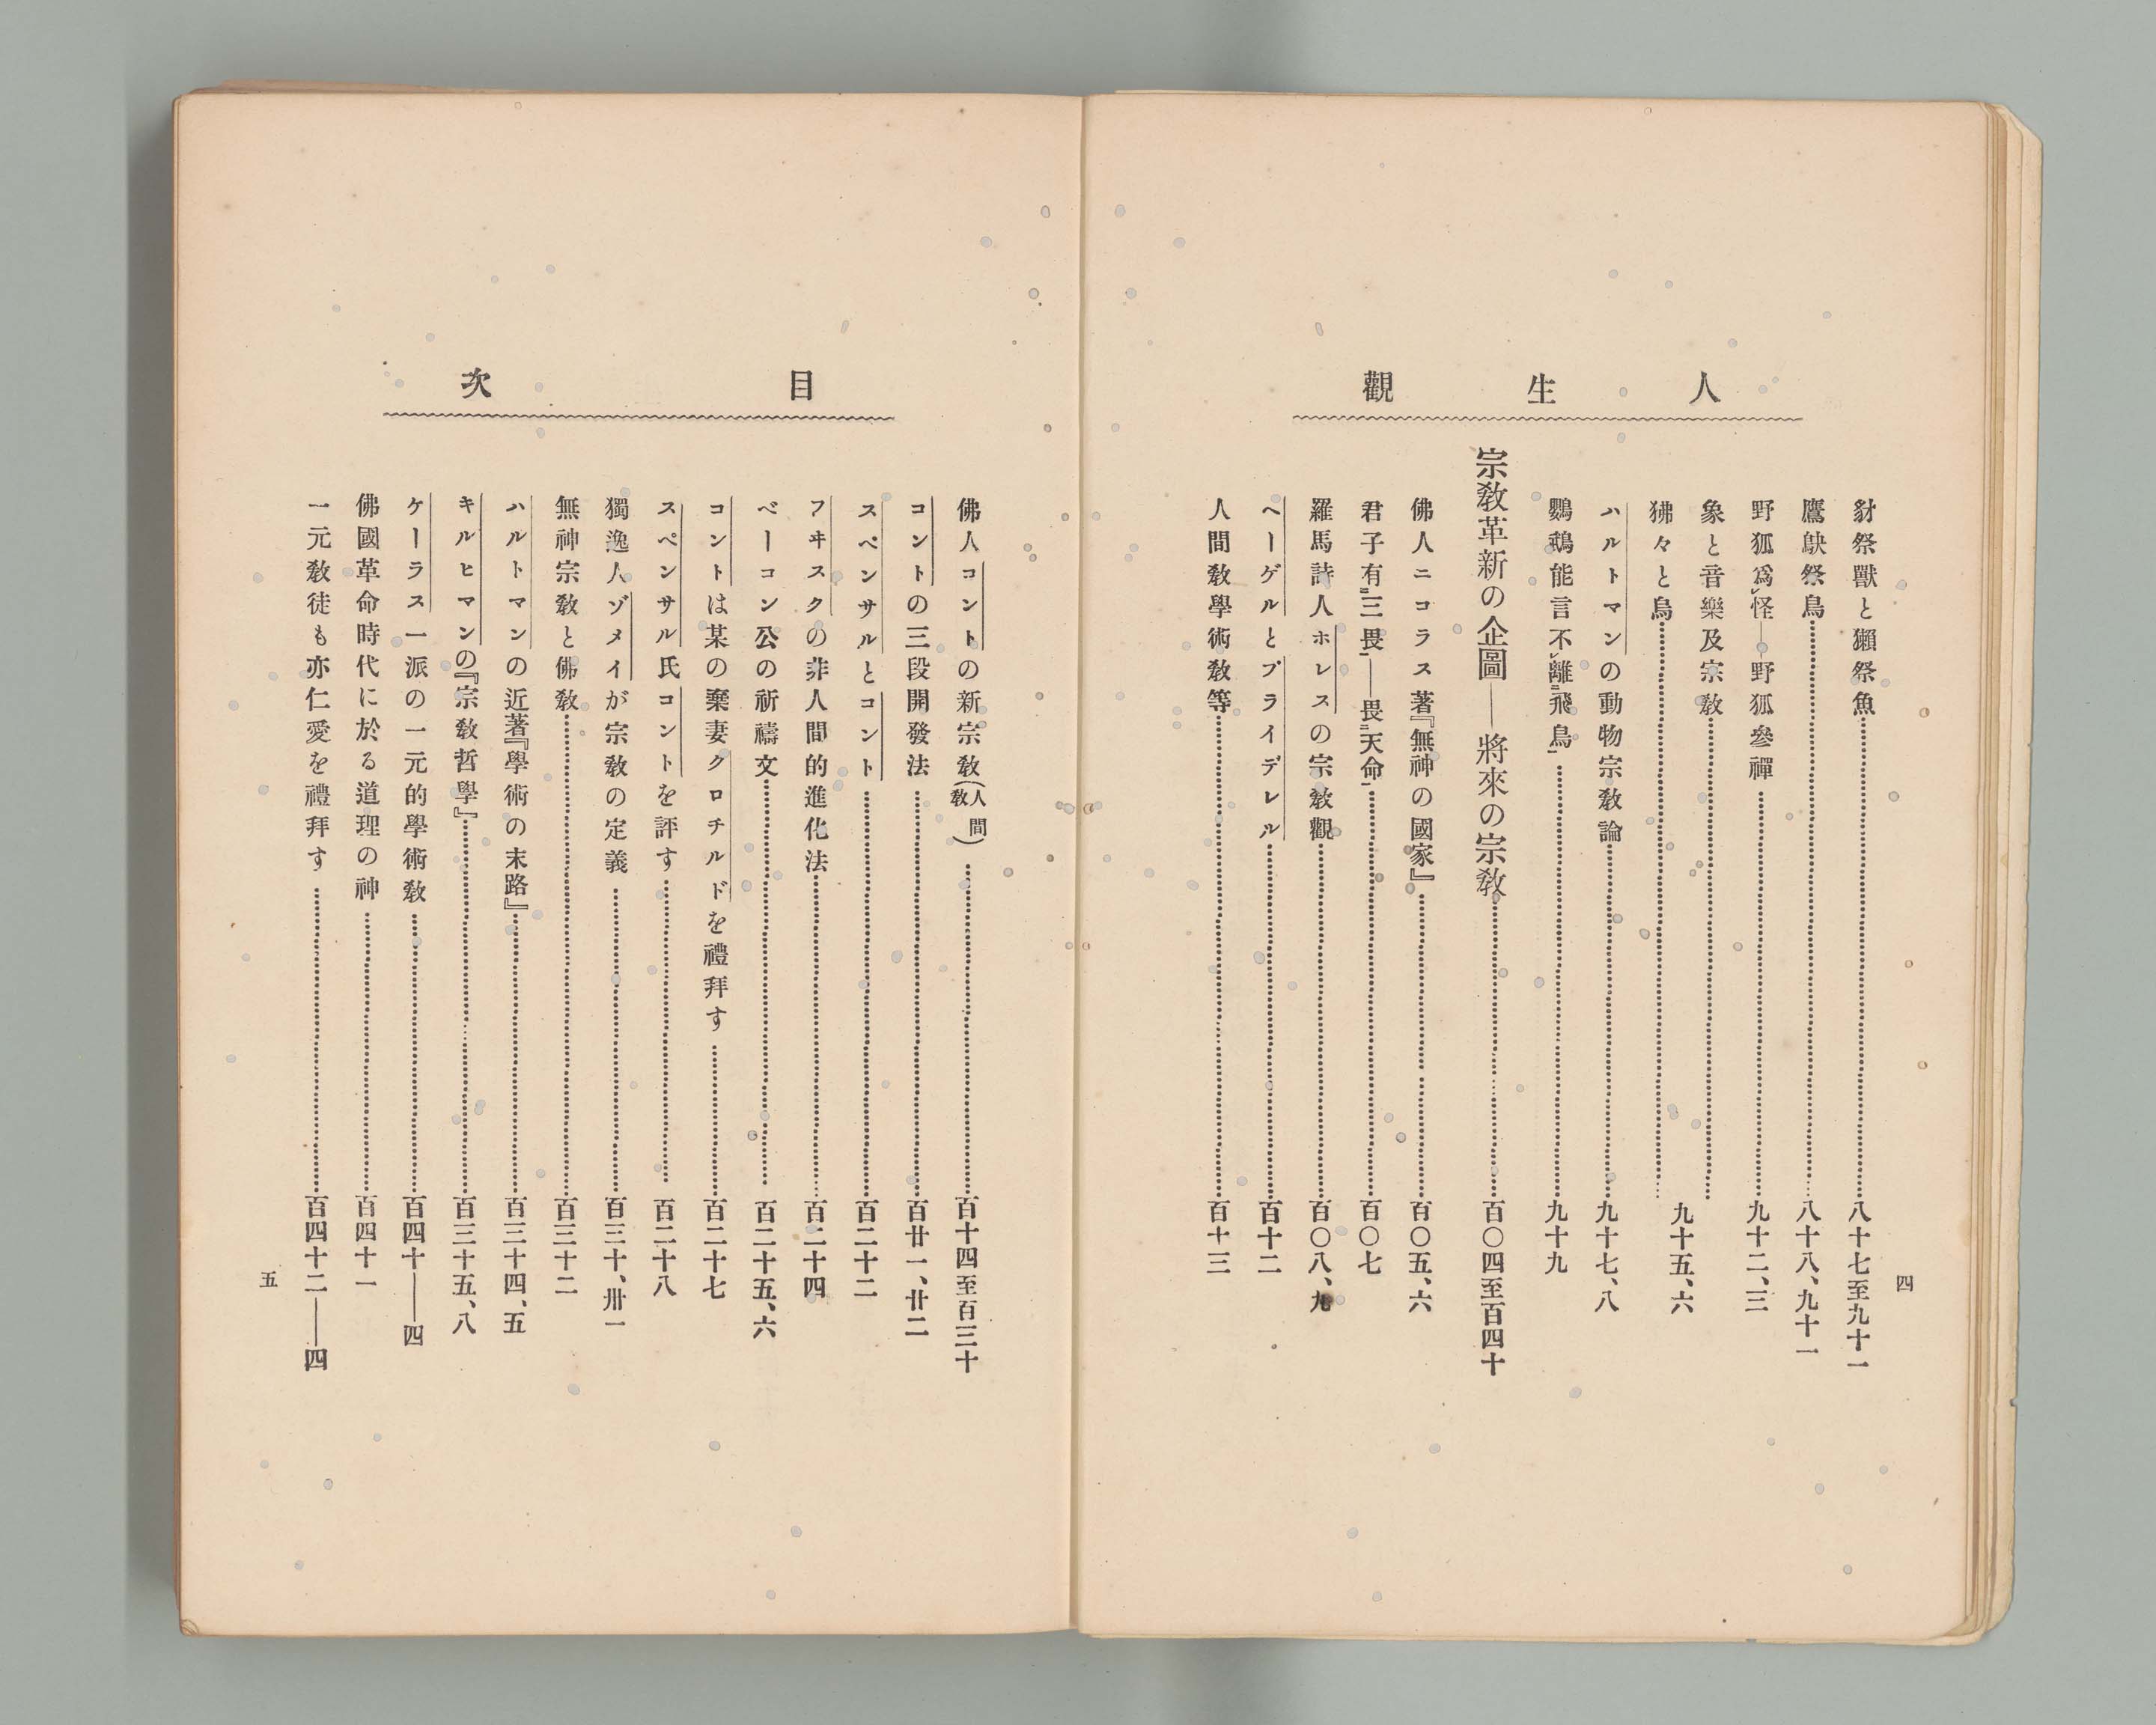 人生觀
四
豺祭獸と獺祭魚……八十七至九十一
鷹鴃祭鳥……八十八、九十一
野狐爲怪―野狐參禪……九十二、三
象と音樂及宗敎……
狒々と鳥……九十五、六
ハルトマンの動物宗敎論……九十七、八
鸚鵡能言不離飛鳥……九十九
宗敎革新の企圖――將來の宗敎……百〇四至百四十
佛人ニコラス著『無神の國家』……百〇五、六
君子有三畏――畏天命……百〇七
羅馬詩人ホレスの宗敎觀……百〇八、九
ヘーゲルとプライデレル……百十二
人間敎學術敎等……百十三
目次
佛人コントの新宗敎(人間敎)……百十四至百三十
コントの三段開發法……百廿一、廿二
スペンサルとコント……百二十二
フヰスクの非人間的進化法……百二十四
ベーコン公の祈禱文……百二十五、六
コントは某の棄妻クロチルドを禮拜す……百二十七
スペンサル氏コントを評す……百二十八
獨逸人ゾメイが宗敎の定義……百三十、卅一
無神宗敎と佛敎……百三十二
ハルトマンの近著『學術の末路』……百三十四、五
キルヒマンの『宗敎哲學』……百三十五、八
ケーラス一派の一元的學術敎……百四十――四
佛國革命時代に於る道理の神……百四十一
一元敎徒も亦仁愛を禮拜す……百四十二――四
五